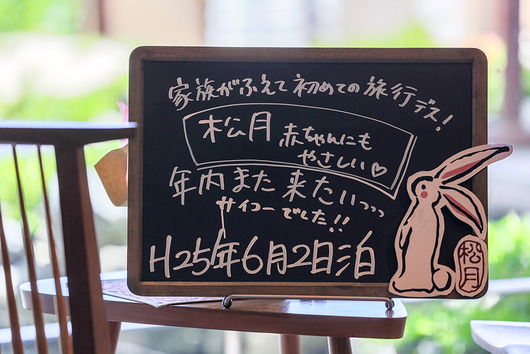 家族がふえて初めての旅行デス!
松月 赤ちゃんにも
やさしい♡
年内また来たいっっっ
サイコーでした!!
H25年6月2日泊
松月